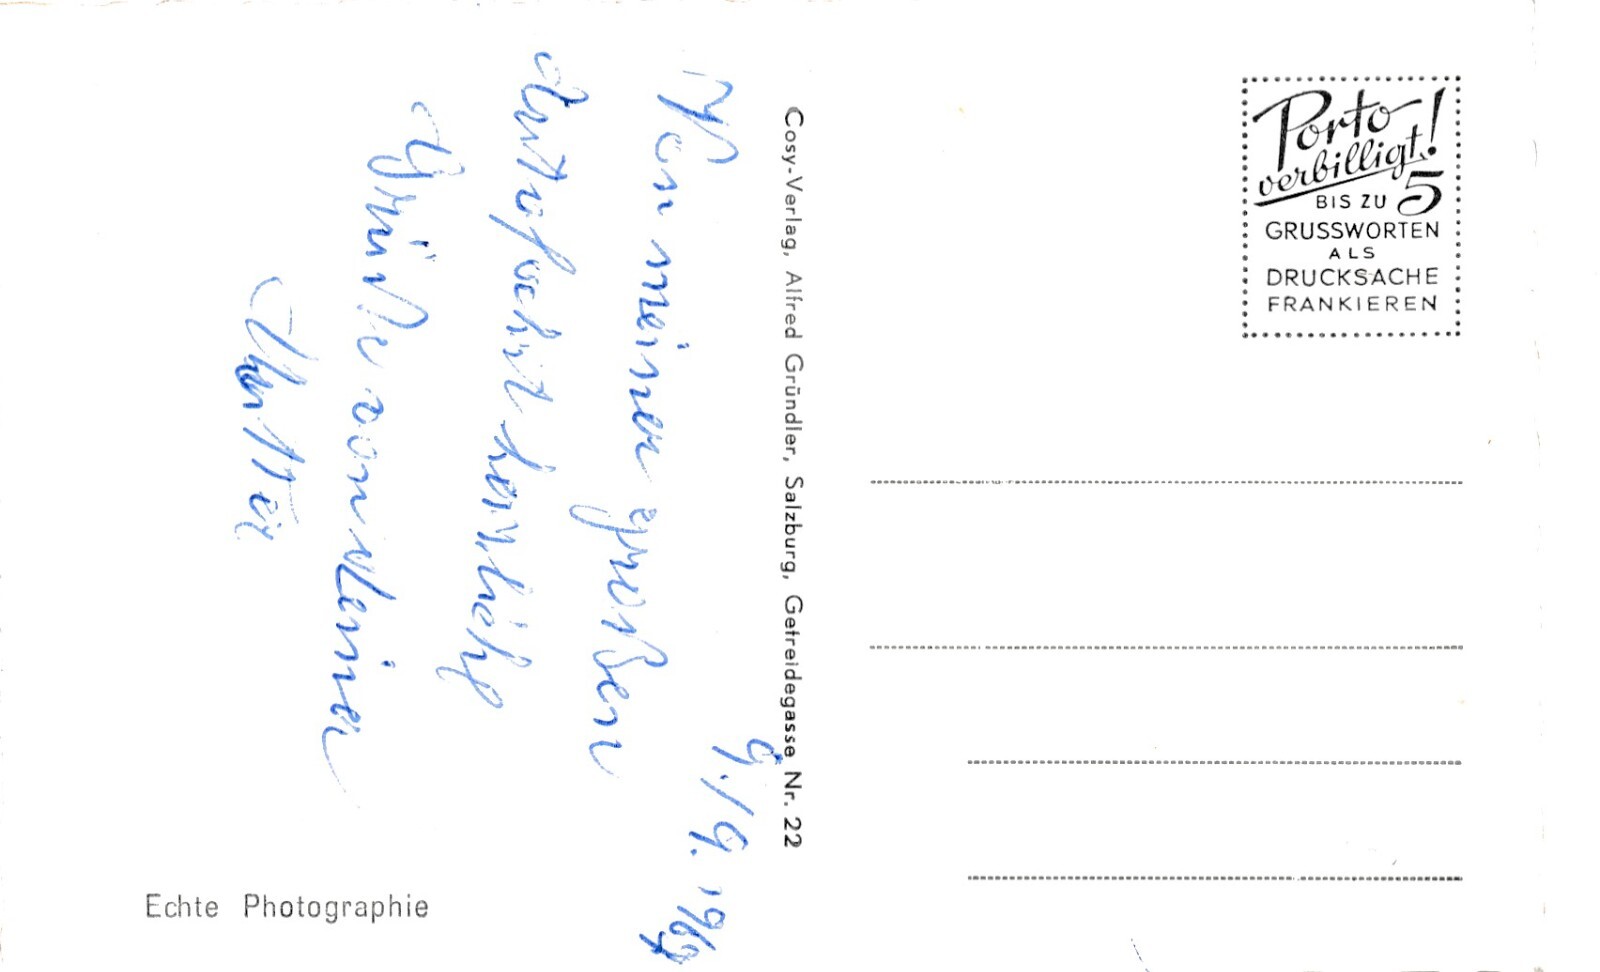 9./9. 1969
Von meiner großen
Autofahrt herzliche
Grüße von Deiner
Mutter
Cosy-Verlag, Alfred Gründler, Salzburg, Getreidegasse Nr. 22
Echte Photographie
Porto
verbilligt!
BIS ZU 5
GRUSSWORTEN
ALS
DRUCKSACHE
FRANKIEREN